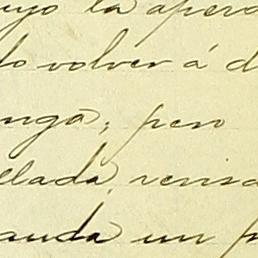 uyo la apero
do volver á d
nga; pero
elada, revisa
anda un p